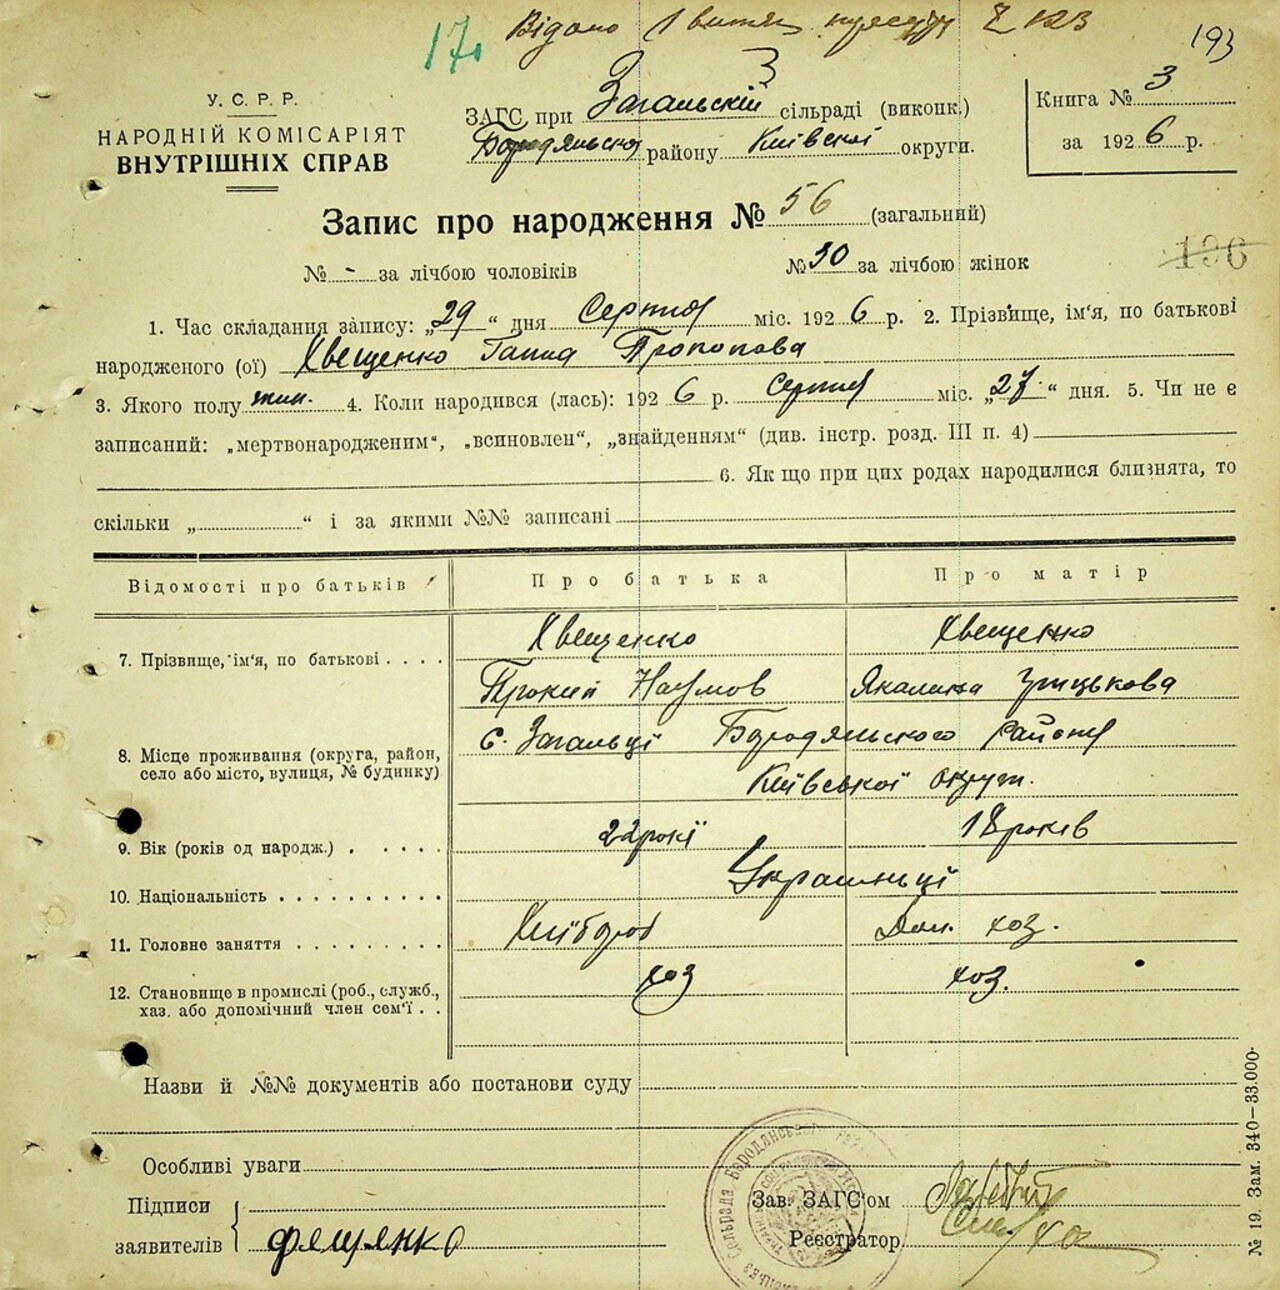 17. Відано 1 витяг
193
У. С. Р. Р.
НАРОДНІЙ КОМІСАРІЯТ
ВНУТРІШНІХ СПРАВ
ЗАГС при Загальській сільраді (виконк.)
Бородяньского району Київскої округи.
Книга № 3
за 1926 р.
Запис про народження № 56 (загальний)
№ - за лічбою чоловіків № 30 за лічбою жінок
196
1. Час складання запису: „29“ дня Серпня міс. 1926 р. 2. Прізвище, ім'я, по батькові
народженого (ої) Хвещенко Ганна Прокопова
3. Якого полу жин. 4. Коли народився (лась): 1926 р. серпня міс. „27“ дня. 5. Чи не є
записаний: „мертвонародженим“, „всиновлен“, „знайденням“ (див. інстр. розд. III п. 4)
6. Як що при цих родах народилися близнята, то
скільки „ “ і за якими №№ записані
Відомості про батьків Про батька Про матір
Хвещенко Хвещенко
7. Прізвище, ім'я, по батькові . . . .
Прокип Наумов Якалина Грицькова
с. Загальці Бородяньского района
8. Місце проживання (округа, район,
село або місто, вулиця, № будинку)
Київської округи.
9. Вік (років од народж.) . . . . . 22 рокі 18 років
10. Національність . . . . . . . . . . Украіньці
11. Головне заняття . . . . . . . . . Хлібороб Дом. хоз.
12. Становище в промислі (роб., служб.,
хаз. або допомічний член сем'ї . . хоз хоз.
Назви й №№ документів або постанови суду
Особливі уваги
Підписи
заявителів Фященко
Зав. ЗАГС'ом
Реєстратор
№ 19. Зам. 340—33.000